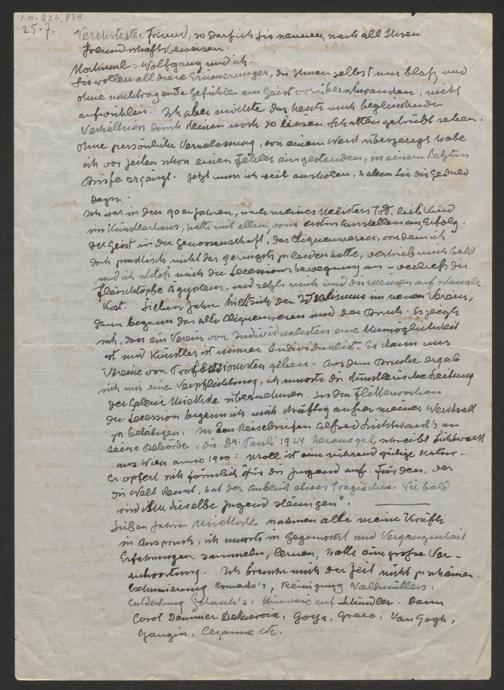 I.N. 224.839
25.7.
Verehrtester Freund, so darf ich Sie nennen, nach all Ihren
Freundschaftsbeweisen.
Nochmal: Wolfgang und ich.
Sie wollen all diese Erinnerungen, die Ihnen selbst nur blass und
ohne nachtragende Gefühle im Geist vorüberhuschen, nicht
aufwühlen. Ich aber möchte das heute mich beglückende
Verhältnis durch keinen noch so leisen Schatten getrübt sehen.
Ohne persönliche Veranlassung, von einem Wert überzeugt habe
ich vor Zeiten schon einen Fehler eingestanden, in einem letzten
Briefe ergänzt. Jetzt muss ich weit ausholen, haben Sie die Geduld
dazu.
Ich war in den 90er Jahren, nach meines Meisters Tod, lieb Kind
im Künstlerhaus, hatte mit allem, vom ersten Ausstellen an Erfolg.
Der Geist in der Genossenschaft, das Cliquenwesen, von dem ich
doch praktisch nicht das geringste zu leiden hatte, vertrieb mich bald
und ich schloss mich der Secessionsbewegung an – verliess die
Fleischtöpfe Ägyptens, und setzte mich und die Meinen auf schmale
Kost. Sieben Jahre hielt sich der Idealismus im neuen Verein,
dann begann das alte Cliquenwesen und der Bruch. Es zeigte
sich, dass ein Verein von Individualisten eine Unmöglichkeit
ist und Künstler ist immer Individualist. Es kann nur
Vereine von Professionisten geben. Aus dem Bruche ergab
sich mir eine Verpflichtung, ich musste die künstlerische Leitung
der Galerie Miethke übernehmen. In den Flitterwochen
der Secession begann ich mich kräftig außer meiner Werkstatt
zu betätigen. In den Reisebriefen Alfred Lichtwark's an
seine Behörde, die Dr. Pauli 1924 herausgab, schreibt Lichtwark
aus Wien anno 1900: Moll ist eine rührend gütige Natur.
Er opfert sich förmlich für die Jugend auf. Für den, der
die Welt kennt, hat der Anblick etwas Tragisches. Wie bald
wird ihn dieselbe Jugend steinigen".
Sieben Jahre Miethke nahmen alle meine Kräfte
in Anspruch, ich musste in Gegenwart und Vergangenheit
Erfahrungen sammeln, lernen, hatte eine große Ver-
antwortung. Ich brauche mich der Zeit nicht zu schämen.
Exhumierung Romako's, Reinigung Waldmüllers,
Entdeckung Hinweis auf Schindler. Dann
Corot Daumier Delacroix, Goya, Greco, Van Gogh,
Gauguin, Cezanne etc.